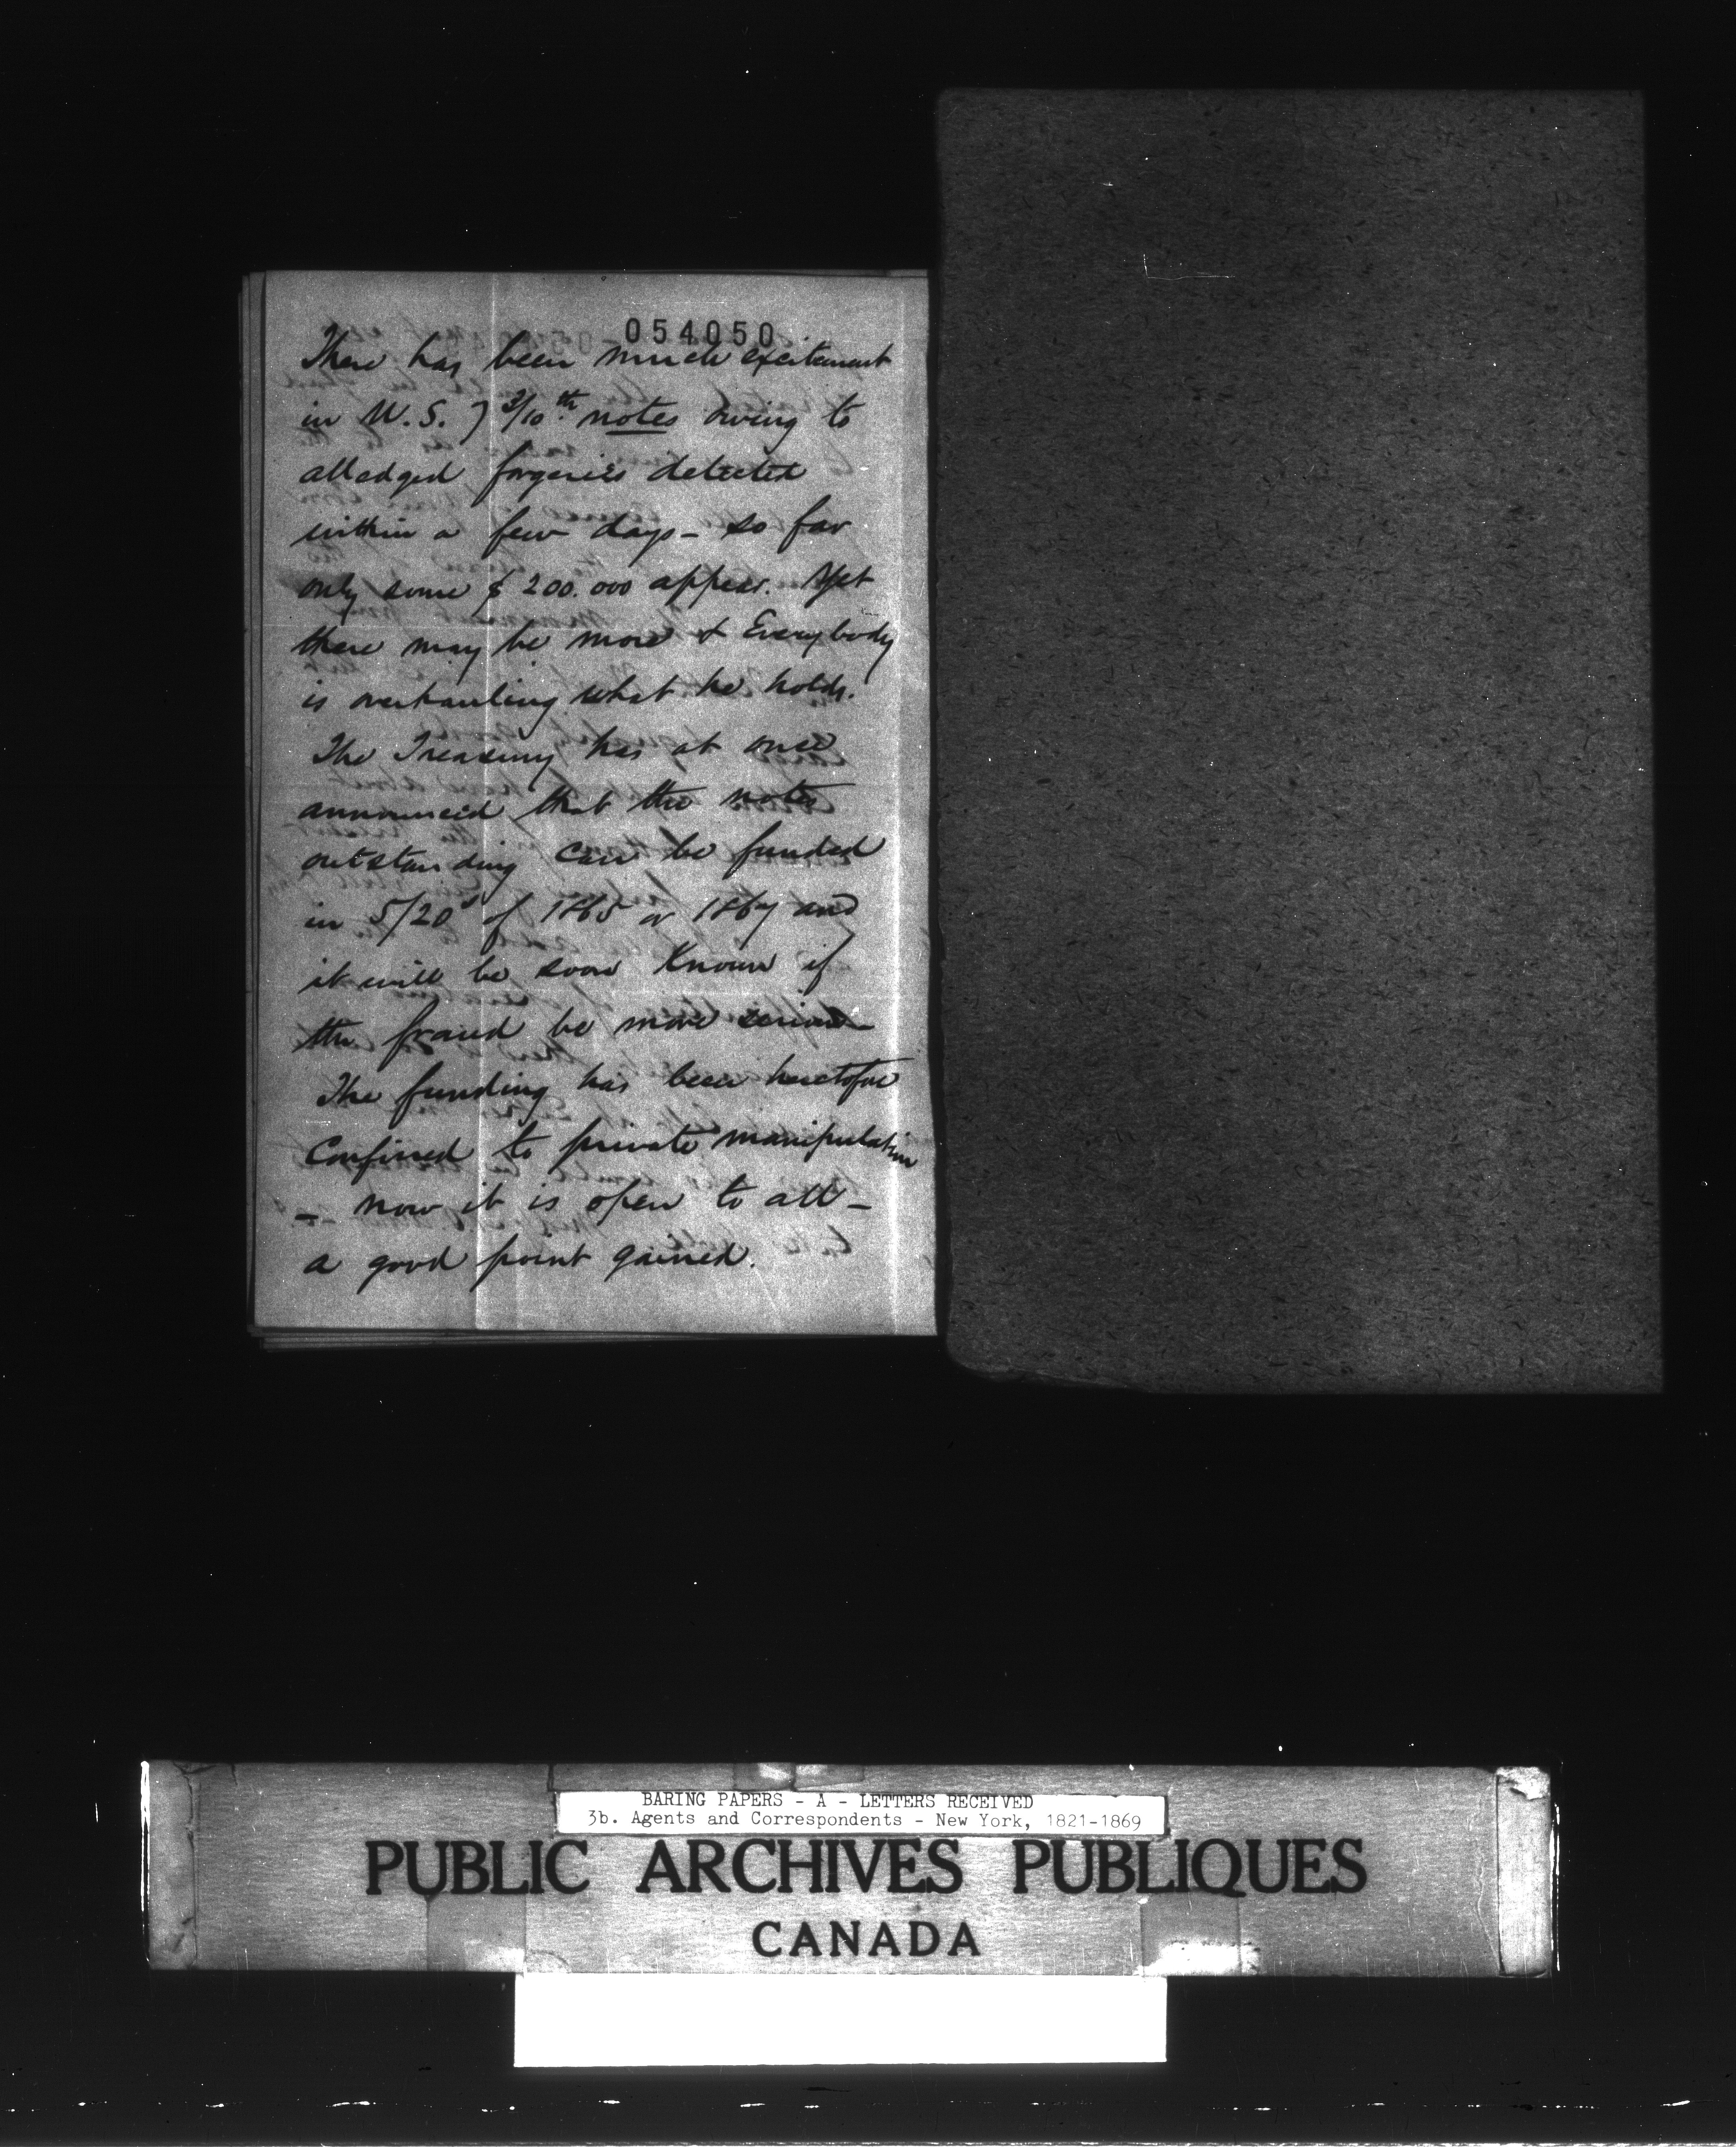 054050
There has been much excitement
in U.S. 7 3/10th notes owing to
alledged forgeries detected
within a few days - so far
only some $ 200.000 appear. Yet
there may be more & Everybody
is overhauling what he holds.
The Treasury has at once
announced that the notes
outstanding can be funded
in 5/20s of 1865 or 1867 and
it will be soon Known if
the fraud be more serious -
The funding has been heretofore
Confined to private manipulation
- now it is open to all -
a good point gained.
BARING PAPERS - A - LETTERS RECEIVED
3b. Agents and Correspondents - New York, 1821-1869
PUBLIC ARCHIVES PUBLIQUES
CANADA